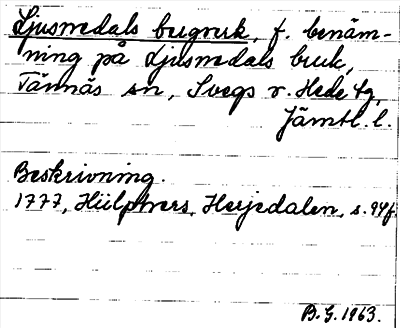 Ljusnedals bergverk, f. benäm-
ning på Ljusnedals bruk,
Tännäs sn, Svegs o. Hede tg,
Jämtl. l.
Beskrivning.
1777, Hülphers, Herjedalen, s. 94f.
B.G. 1963.